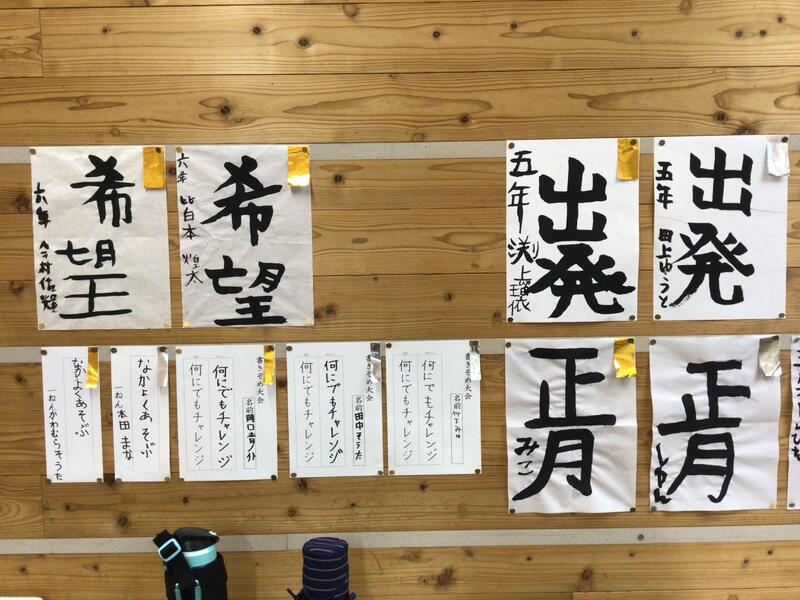 希望
六年
今村佑燿
希望
六年
出発
五年
渕上
出発
五年
田上ゆうと
なかよくあそぶ
一ねんかわむらそうた
なかよくあそぶ
一ねん本田まな
書きぞめ大会
何にでもチャレンジ
何にでもチャレンジ
書きぞめ大会
名前田中そうた
何にでもチャレンジ
何にでもチャレンジ
書きぞめ大会
名前竹下みゆ
何にでもチャレンジ
何にでもチャレンジ
正月
みこ
正月